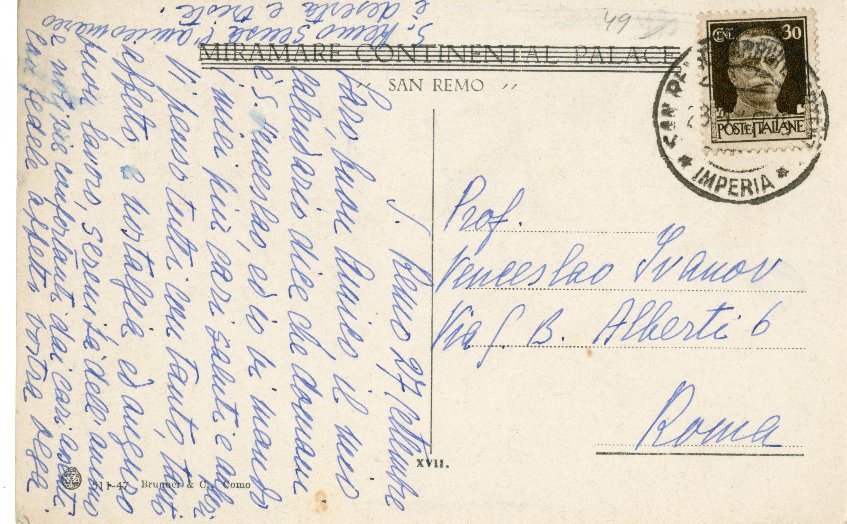 MIRAMARE CONTINENTAL PALACE
SAN REMO
49
CENT. 30
POSTE ITALIANE
SAN REMO
IMPERIA
Prof.
Venceslao Ivanov
Via G. B. Alberti 6
Roma
S. Remo 27 settembre
Caro buon Amico il mio
calendario dice che domani
è S. Venceslao, ed io vi mando
i miei più cari saluti e
Vi penso tutti con tanto, tanto
affetto, e nostalgia ed auguro
buon lavoro, serenità dell'animo
e notizie confortanti dai cari
fedele affetto vostra Olga
S. Remo senza l'amico mare
è deserta e triste.
XVII.
511-47 Brunner & C., Como